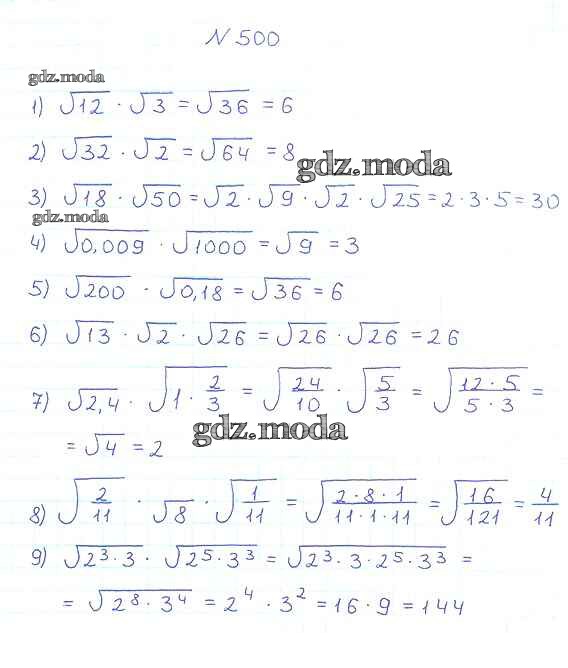 N 500
gdz.moda
1) √12 · √3 = √36 = 6
2) √32 · √2 = √64 = 8
gdz.moda
3) √18 · √50 = √2 · √9 · √2 · √25 = 2 · 3 · 5 = 30
gdz.moda
4) √0,009 · √1000 = √9 = 3
5) √200 · √0,18 = √36 = 6
6) √13 · √2 · √26 = √26 · √26 = 26
7) √2,4 · √(1 · 2/3) = √(24/10) · √(5/3) = √((12 · 5)/(5 · 3)) =
gdz.moda
= √4 = 2
8) √(2/11) · √8 · √(1/11) = √((2 · 8 · 1)/(11 · 1 · 11)) = √(16/121) = 4/11
9) √(2³ · 3) · √(2⁵ · 3³) = √(2³ · 3 · 2⁵ · 3³) =
= √(2⁸ · 3⁴) = 2⁴ · 3² = 16 · 9 = 144